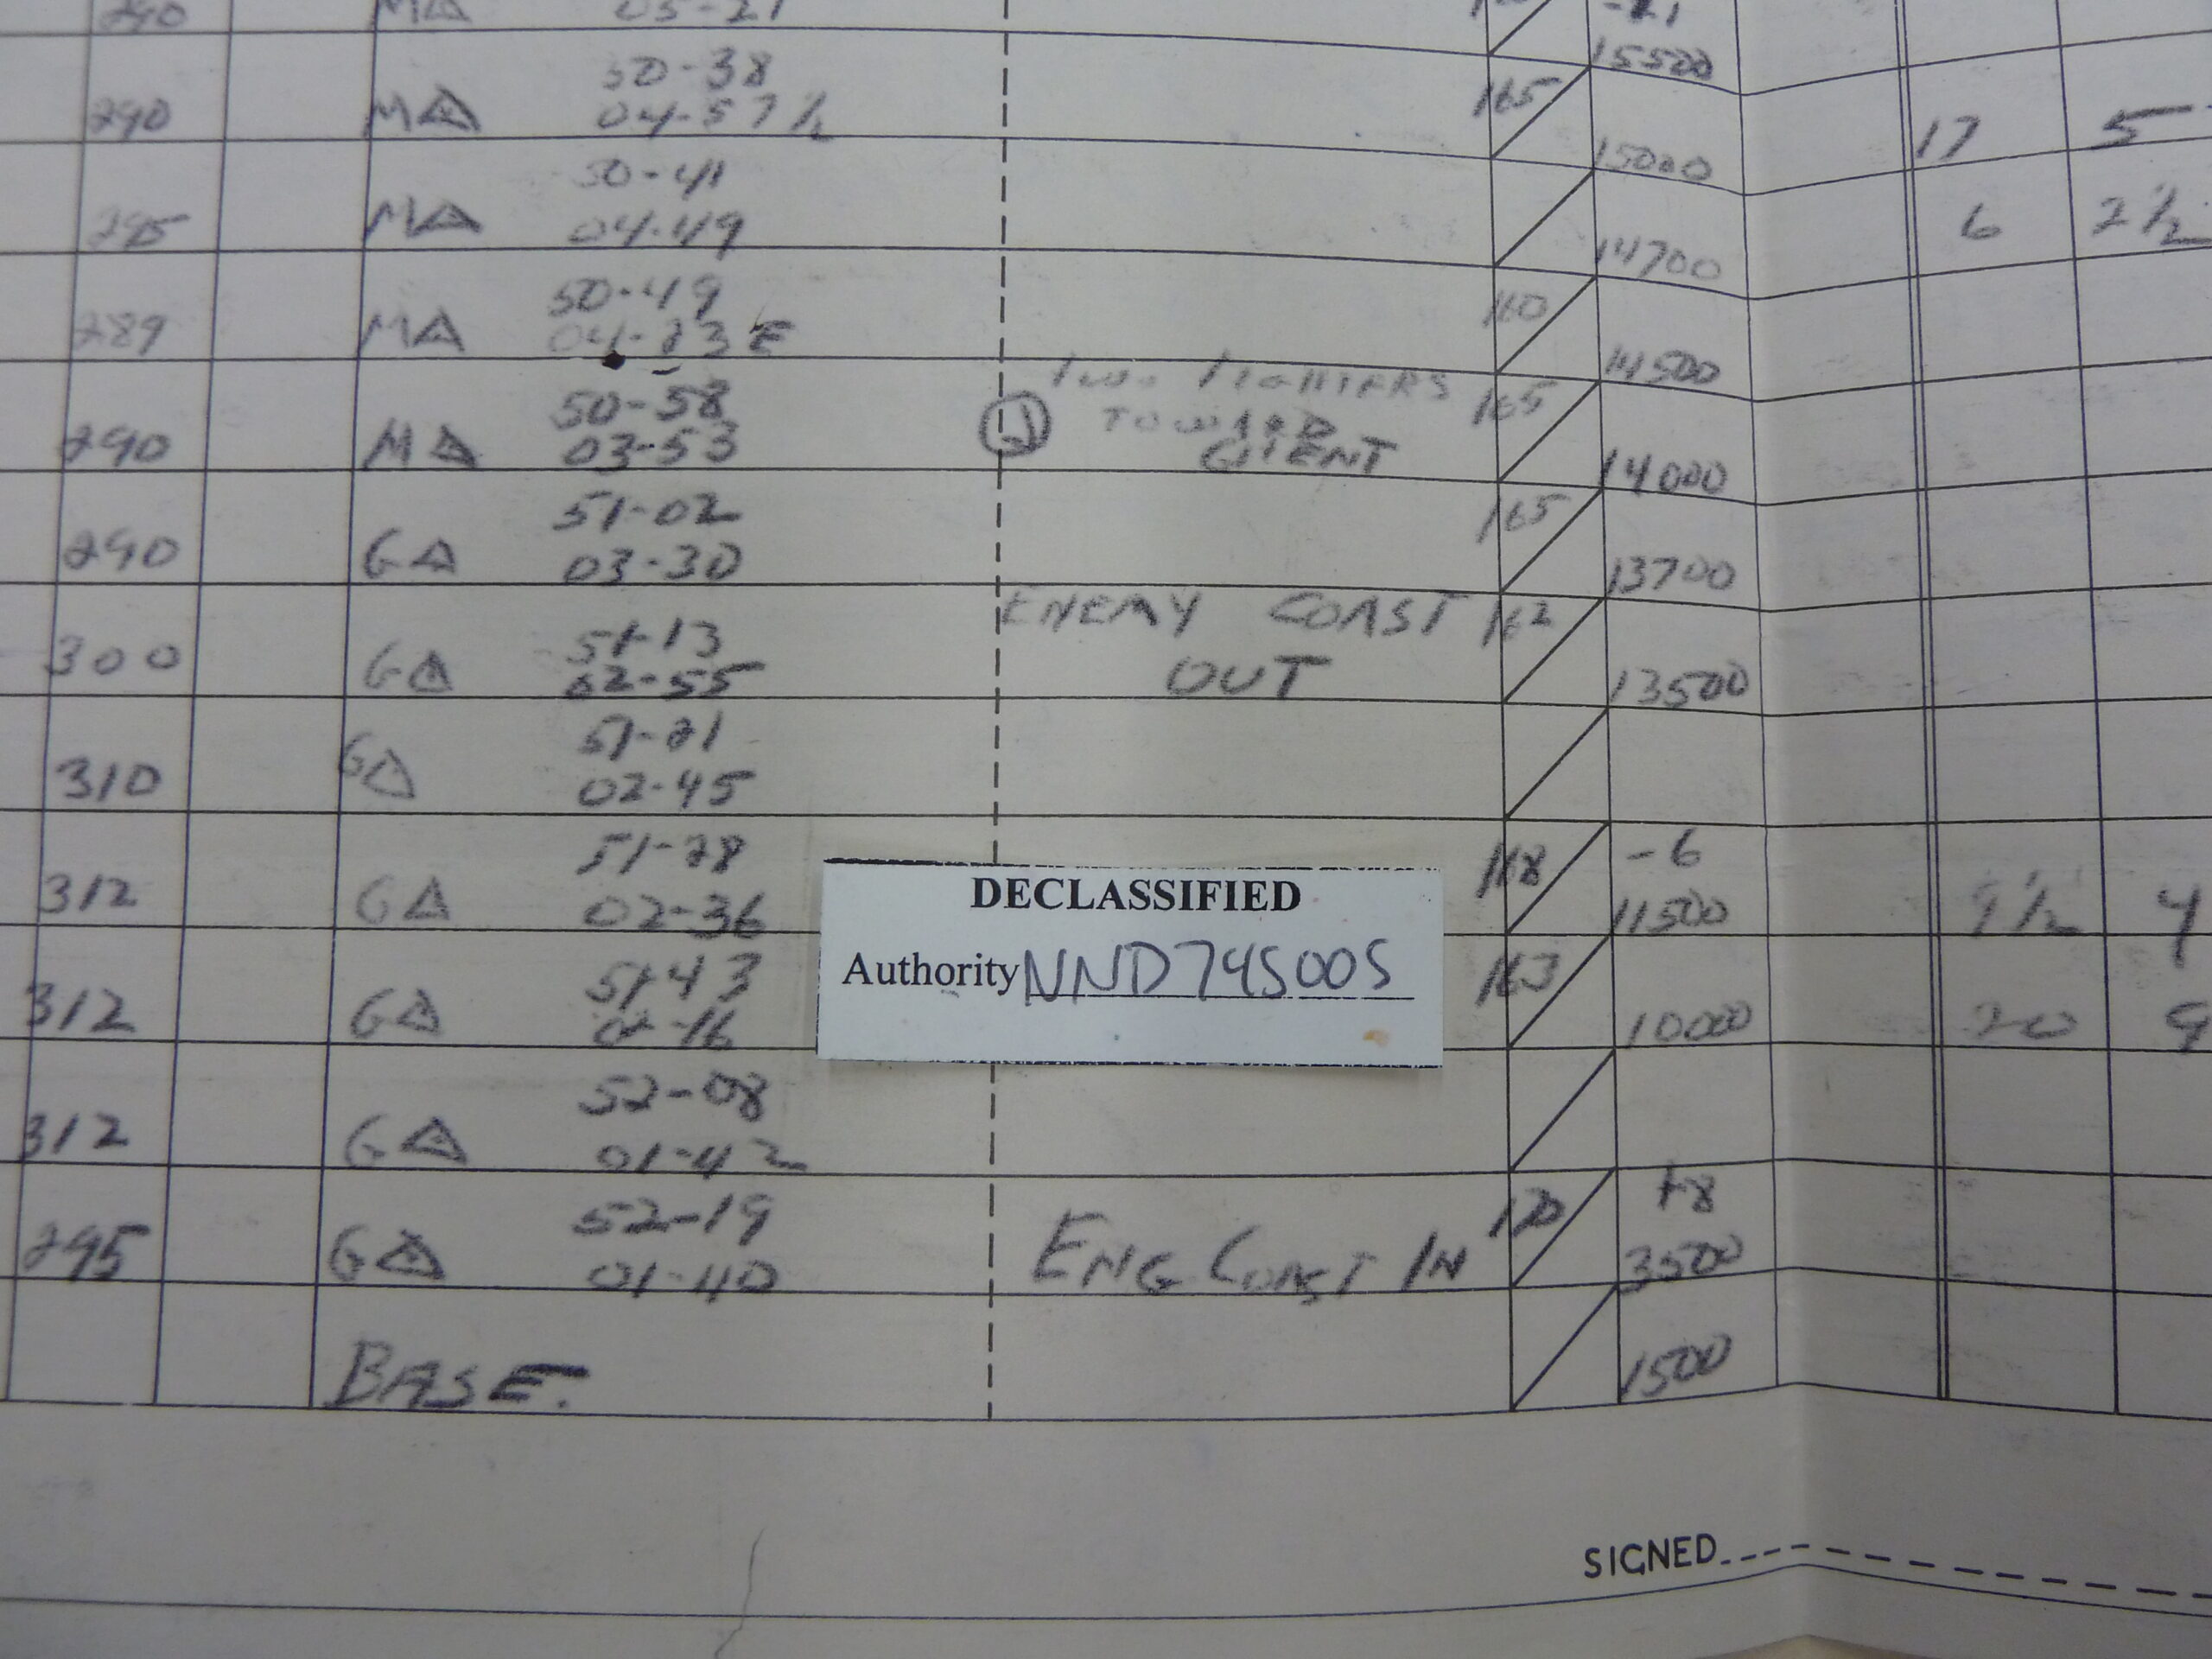 290 MΔ 05-21 -21
50-38 15500
290 MΔ 04-57½ 165
50-41 15000 17 5
295 MΔ 04-49 6 2½
50-49 14700
289 MΔ E 160
50-58 TWO FIGHTERS 14500
290 MΔ 03-53 TOWARD 165
GHENT
51-02 14000
290 GΔ 03-30 165
51-13 ENEMY COAST 162 13700
300 GΔ 02-55 OUT 13500
51-21
310 GΔ 02-45
51-28 168 -6
312 GΔ 02-36 11500 9½ 4
DECLASSIFIED
Authority NND745005
51-43 163
312 GΔ -16 10000 20 9
52-08
312 GΔ 01-42
52-19 170 +8
295 GΔ 01-40 ENG COAST IN 3500
BASE. 1500
SIGNED